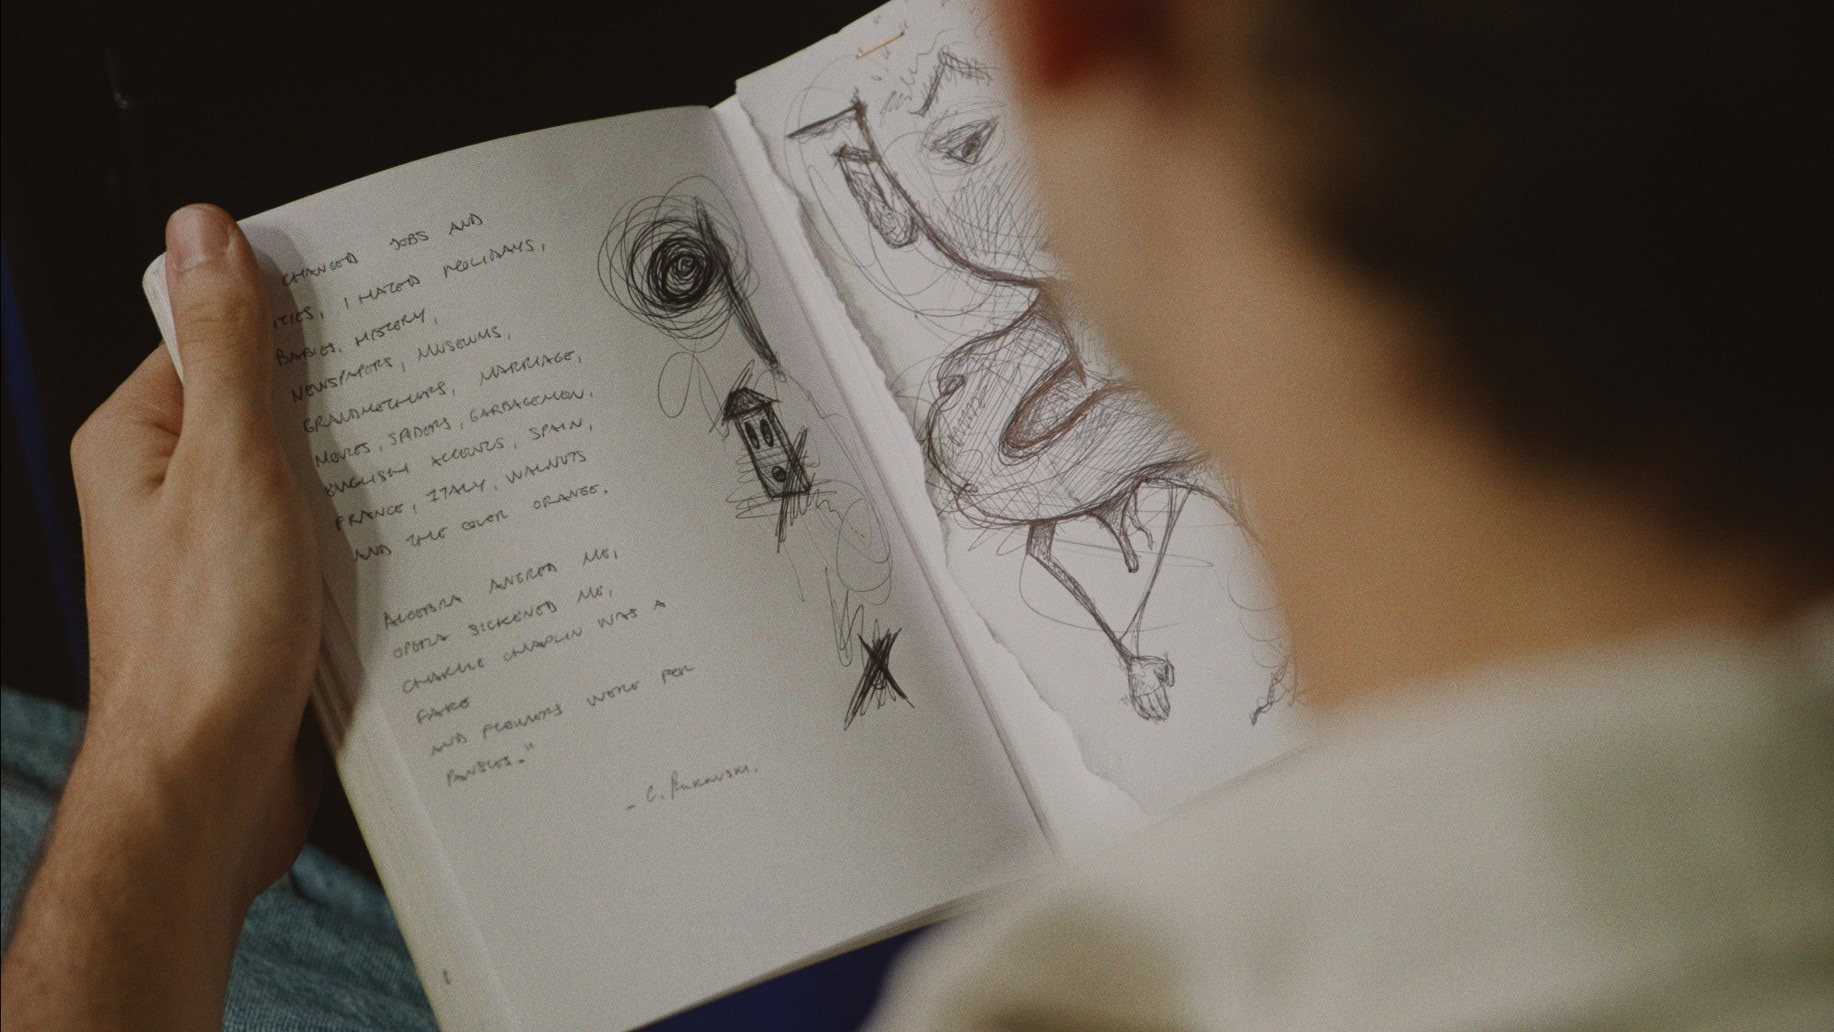 CHANGED JOBS AND
ITIES, I HATED HOLIDAYS,
BABIES, HISTORY,
NEWSPAPERS, MUSEUMS,
GRANDMOTHERS, MARRIAGE,
MOVIES, SPIDERS, GARBAGEMEN,
ENGLISH ACCENTS, SPAIN,
FRANCE, ITALY, WALNUTS
AND THE COLOR ORANGE.
ALGEBRA ANGRED ME,
OPERA SICKENED ME,
CHARLIE CHAPLIN WAS A
FAKE
AND FLOWERS WERE FOR
PANSIES."
- C. Bukowski.